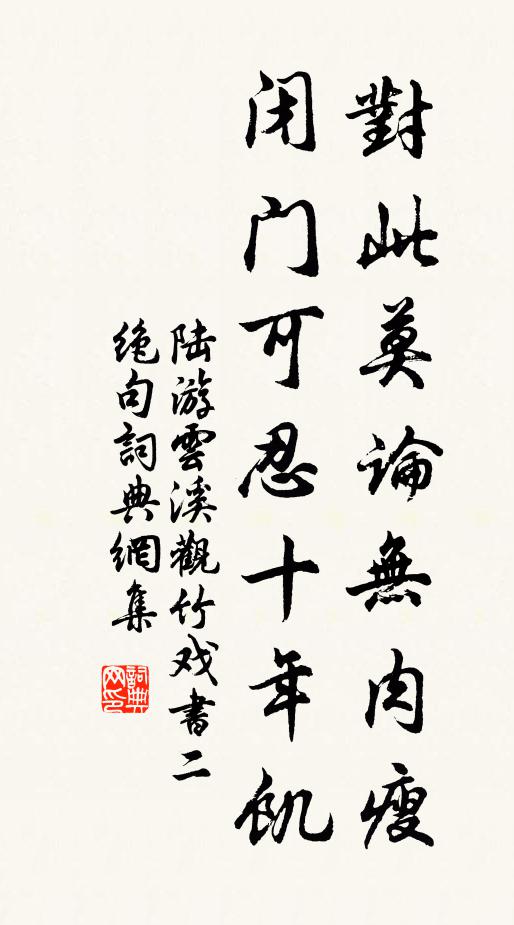 對此莫論無肉瘦
闭门可忍十年飢
陆游雲溪觀竹戏書二
绝句詞典網集
詞典网印